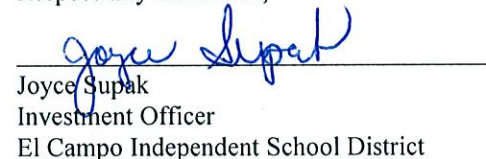 Joyce Supak
Joyce Supak
Investment Officer
El Campo Independent School District